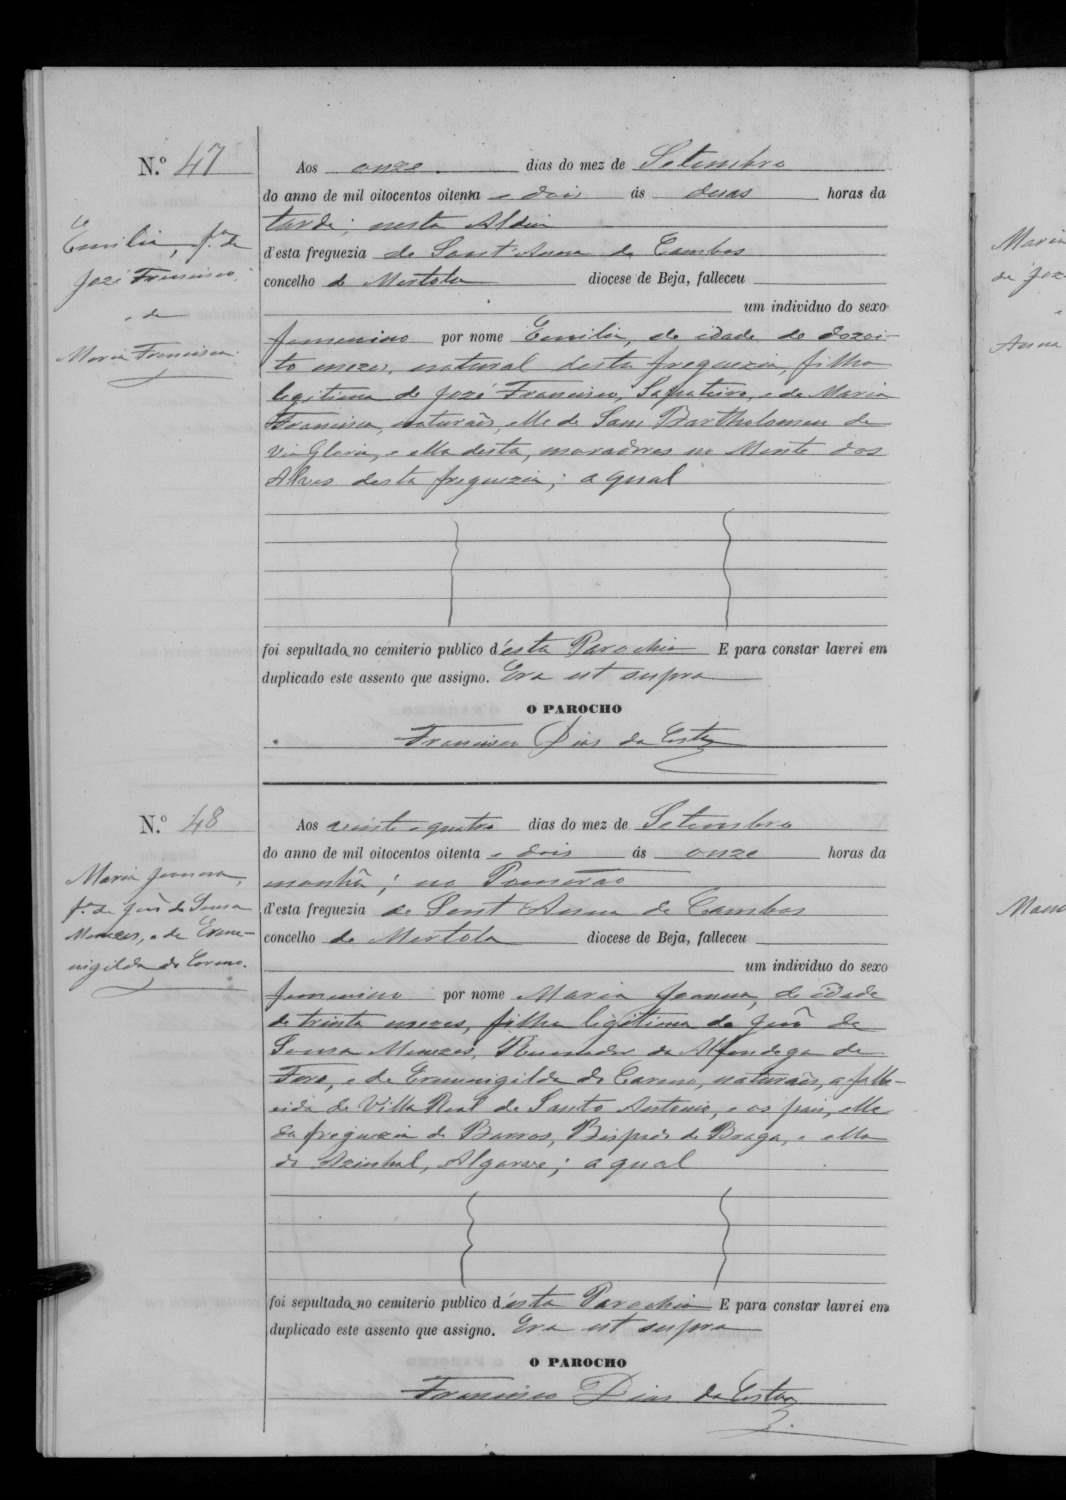 N.º 47
Emilia, f.ª de
José Francisco
e de
Maria Francisca
Aos onze dias do mez de Setembro
do anno de mil oitocentos oitenta e dois ás duas horas da
tarde; nesta Aldeia
d'esta freguezia de Sant'Anna de Cambas
concelho de Mertola diocese de Beja, falleceu
um individuo do sexo
femenino por nome Emilia, de idade de dezoi-
to mezes, natural desta freguezia, filha
legitima de José Francisco, Sapateiro, e de Maria
Francisca, naturaes, elle de Sam Bartholomeu de
Via Gloria, e ella desta, moradores no Monte dos
Alves desta freguezia; a qual
foi sepultada no cemiterio publico d'esta Parochia E para constar lavrei em
duplicado este assento que assigno. Era ut supra
O PAROCHO
Francisco Dias da Costa
N.º 48
Maria Joanna,
f.ª de João de Sousa
Menezes, e de Erme-
nigilda do Carmo.
Aos vinte e quatro dias do mez de Setembro
do anno de mil oitocentos oitenta e dois ás onze horas da
manhã; no Pomarão
d'esta freguezia de Sant'Anna de Cambas
concelho de Mertola diocese de Beja, falleceu
um individuo do sexo
femenino por nome Maria Joanna, de idade
de trinta mezes, filha legitima de João de
Sousa Menezes, Remador da Alfandega de
Faro, e de Ermenigilda do Carmo, naturaes, a falle-
cida de Villa Real de Santo Antonio, e os pais, elle
da freguezia de Barros, Bispado de Braga, e ella
de Azinhal, Algarve; a qual
foi sepultada no cemiterio publico d'esta Parochia E para constar lavrei em
duplicado este assento que assigno. Era ut supra
O PAROCHO
Francisco Dias da Costa
Maria
de Joz
e
Anna